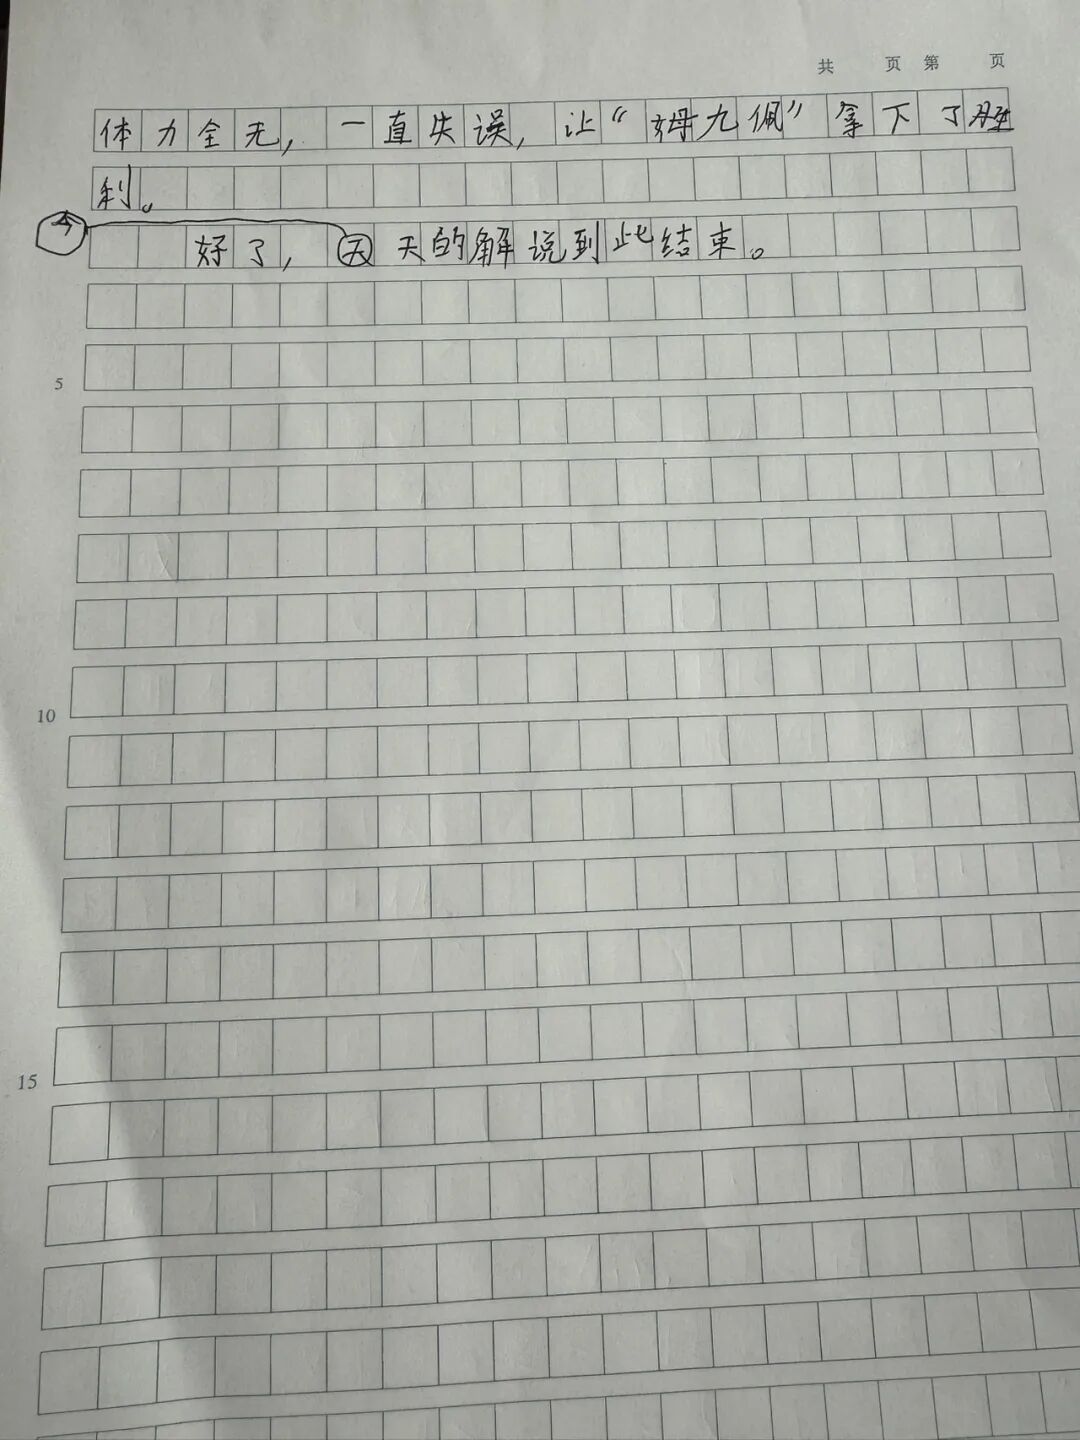 共 页 第 页
体力全无，一直失误，让“姆九佩”拿下了胜
利。
今
好了，天天的解说到此结束。
5
10
15